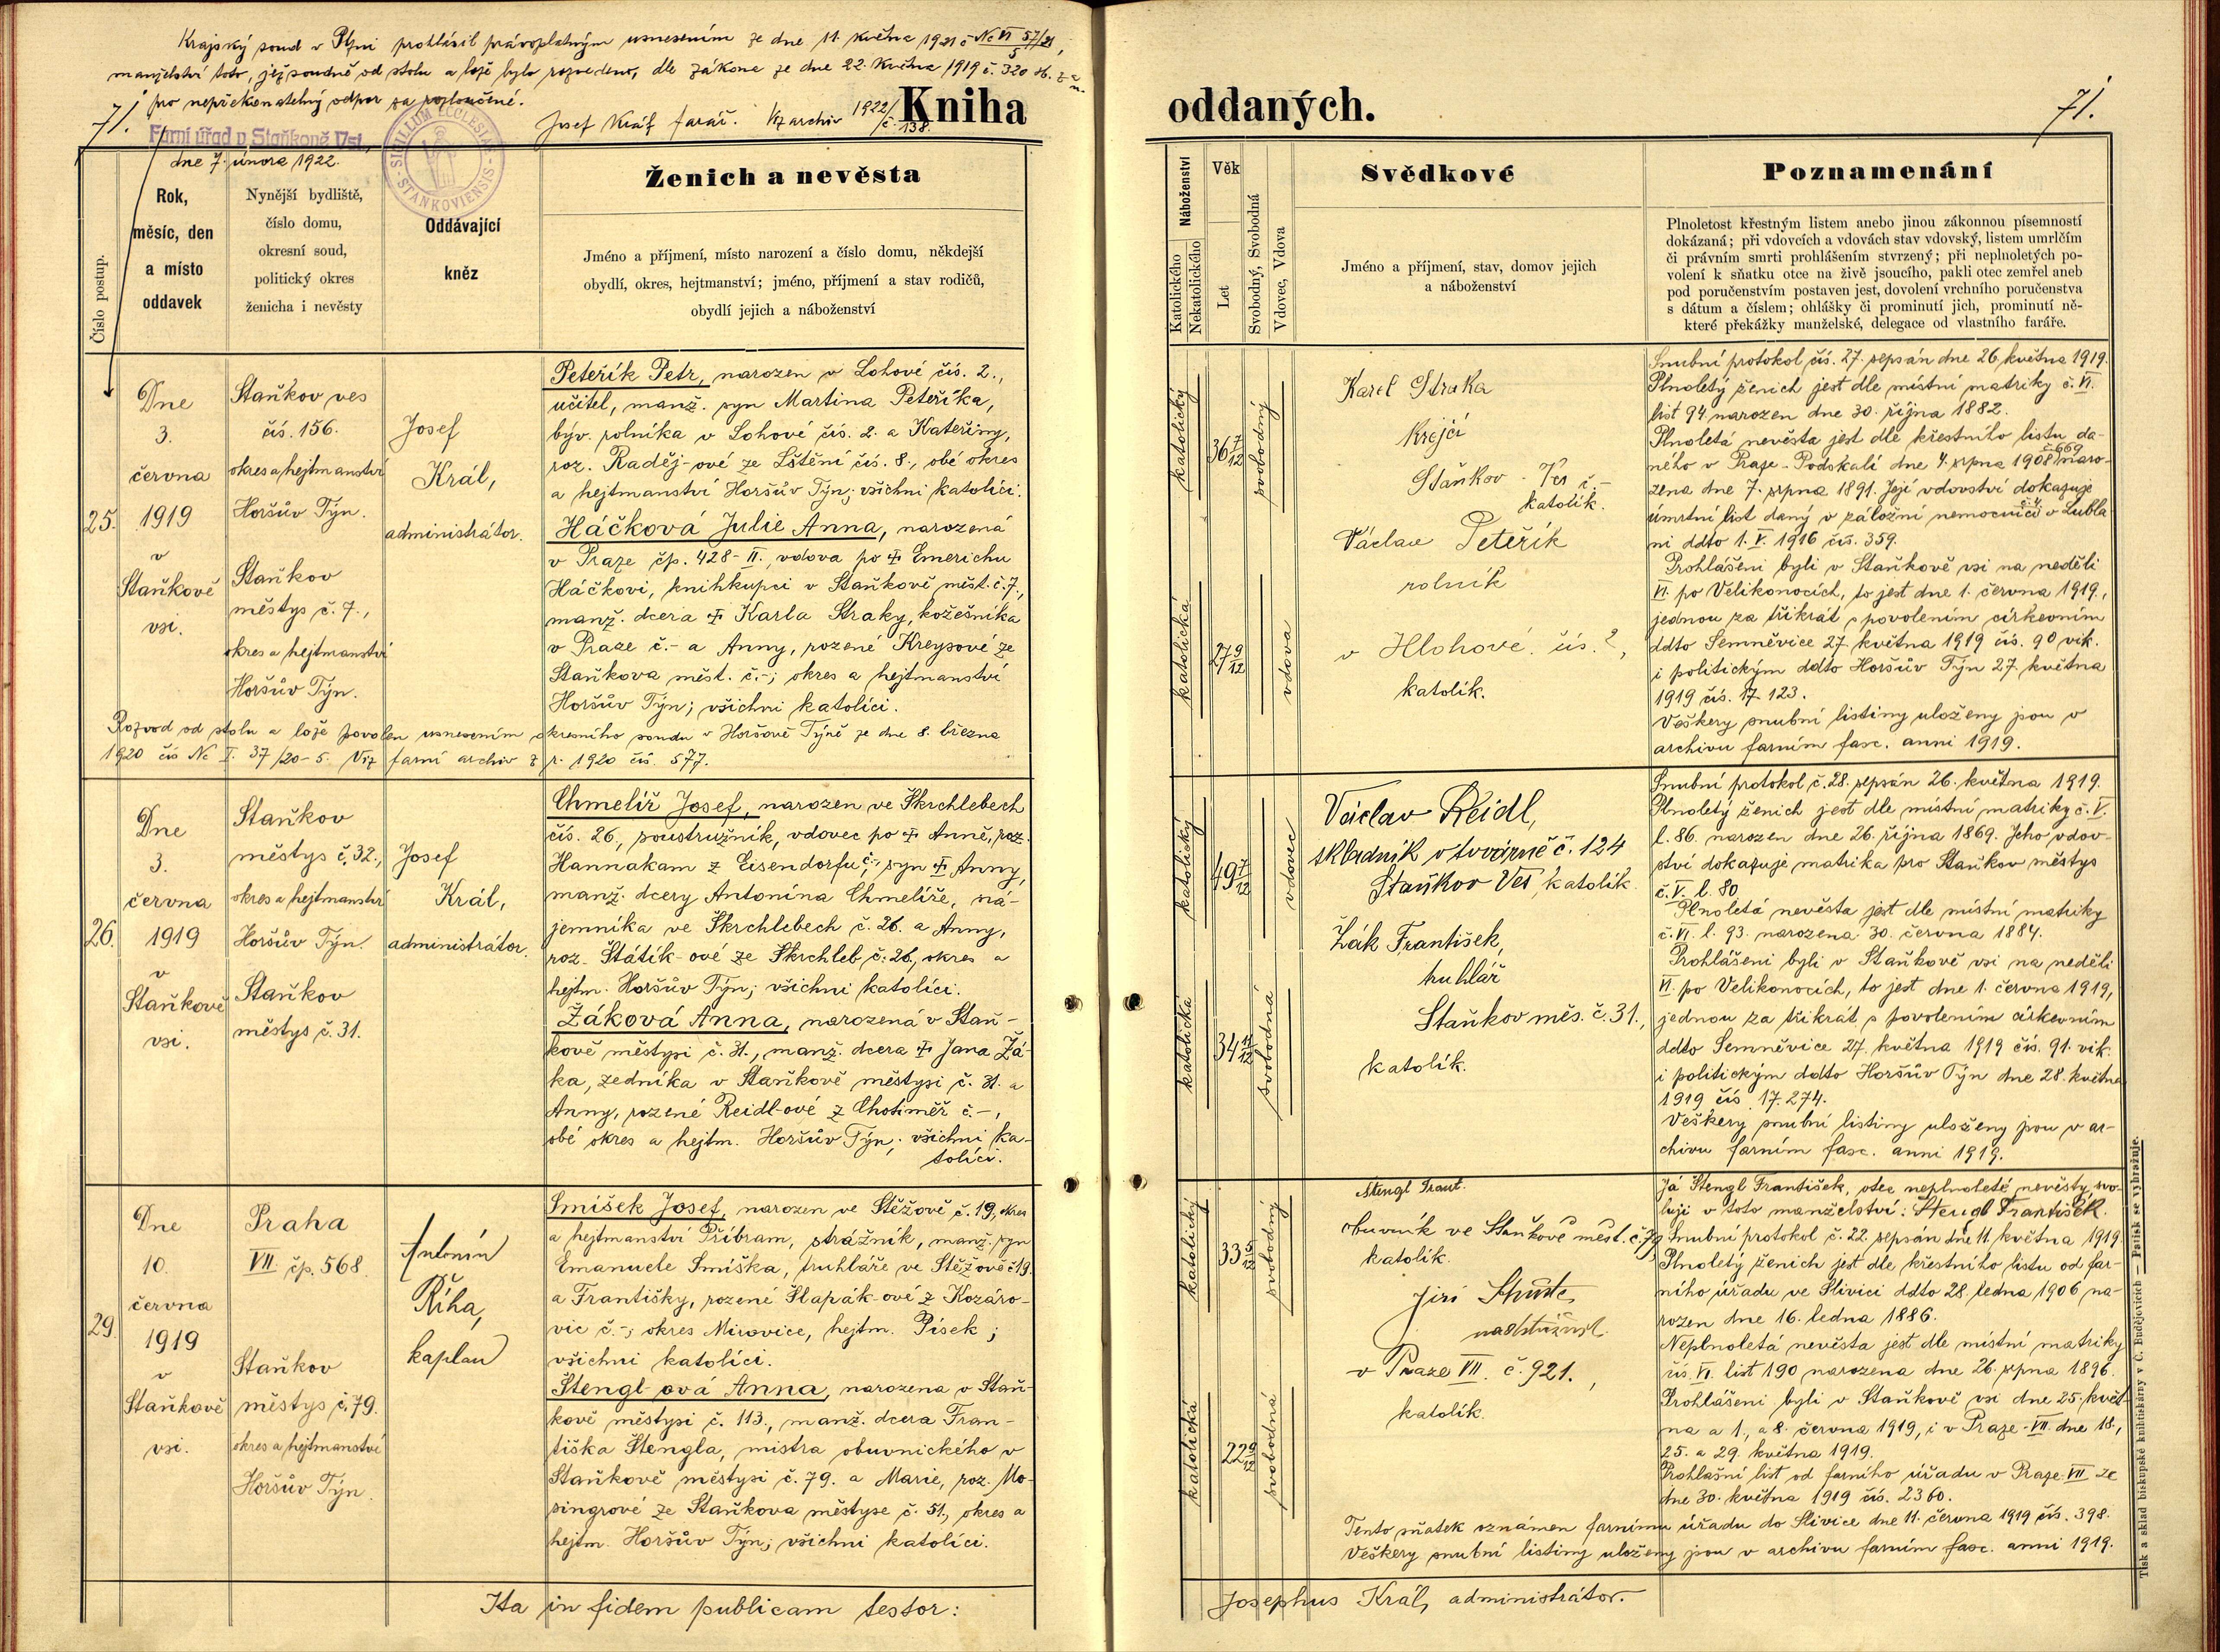 Krajský soud v Plzni prohlásil právoplatným usnesením ze dne 11. května 1921 č. Nc VI 57/21/5,
manželství toto, jež soudně od stolu a lože bylo rozvedeno, dle zákona ze dne 22. května 1919 č. 320 sb. z. a n.
pro nepřekonatelný odpor za rozloučené.
71.
Farní úřad v Staňkově Vsi,
dne 7. února 1922.
SIGILLUM ECCLESIAE STANKOVIENSIS
Josef Král farář. Viz archiv 1922/č. 138.
Kniha
Číslo postup.
Rok,
měsíc, den
a místo
oddavek
Nynější bydliště,
číslo domu,
okresní soud,
politický okres
ženicha i nevěsty
Oddávající
kněz
Ženich a nevěsta
Jméno a příjmení, místo narození a číslo domu, někdejší
obydlí, okres, hejtmanství; jméno, příjmení a stav rodičů,
obydlí jejich a náboženství
25.
Dne
3.
června
1919
v
Staňkově
vsi.
Staňkov ves
čís. 156.
okres a hejtmanství
Horšův Týn.
Staňkov
městys č. 7.,
okres a hejtmanství
Horšův Týn.
Josef
Král,
administrátor.
Peteřík Petr, narozen v Lohové čís. 2.,
učitel, manž. syn Martina Peteříka,
býv. rolníka v Lohové čís. 2. a Kateřiny,
roz. Raděj-ové ze Lštění čís. 8., obé okres
a hejtmanství Horšův Týn; všichni katolíci.
Háčková Julie Anna, narozená
v Praze čp. 428-II., vdova po ‡ Emerichu
Háčkovi, knihkupci v Staňkově měst. č. 7.,
manž. dcera ‡ Karla Straky, kožešníka
v Praze č.- a Anny, rozené Kreysové ze
Staňkova měst. č.-; okres a hejtmanství
Horšův Týn; všichni katolíci.
Rozvod od stolu a lože povolen usnesením okresního soudu v Horšově Týně ze dne 8. března
1920 čís Nc I. 37/20-5. Viz farní archiv z r. 1920 čís. 577.
26.
Dne
3.
června
1919
v
Staňkově
vsi.
Staňkov
městys č. 32.,
okres a hejtmanství
Horšův Týn.
Staňkov
městys č. 31.
Josef
Král,
administrátor.
Chmelíř Josef, narozen ve Škrchlebech
čís. 26., soustružník, vdovec po ‡ Anně, roz.
Hannakam z Eisendorfu č.-, syn ‡ Anny,
manž. dcery Antonína Chmelíře, ná-
jemníka ve Škrchlebech č. 26. a Anny,
roz. Štátík-ové ze Škrchleb č. 26., okres a
hejtm. Horšův Týn; všichni katolíci.
Žáková Anna, narozená v Staň-
kově městysi č. 31., manž. dcera ‡ Jana Žá-
ka, zedníka v Staňkově městysi č. 31. a
Anny, rozené Reidl-ové z Chotiměř č.-,
obé okres a hejtm. Horšův Týn; všichni ka-
tolíci.
29.
Dne
10.
června
1919
v
Staňkově
vsi.
Praha
VII. čp. 568.
Staňkov
městys č. 79.
okres a hejtmanství
Horšův Týn.
Antonín
Říha,
kaplan
Smíšek Josef, narozen ve Stěžově č. 19, okres
a hejtmanství Příbram, strážník, manž. syn
Emanuele Smíška, truhláře ve Stěžově č. 19.
a Františky, rozené Šlapák-ové z Kozáro-
vic č.-; okres Mirovice, hejtm. Písek;
všichni katolíci.
Štengl-ová Anna, narozena v Staň-
kově městysi č. 113., manž. dcera Fran-
tiška Štengla, mistra obuvnického v
Staňkově městysi č. 79. a Marie, roz. Mo-
singrové ze Staňkova městyse č. 51., okres a
hejtm. Horšův Týn; všichni katolíci.
Ita in fidem publicam testor:
oddaných.
71.
Náboženství
Katolického
Nekatolického
Věk
Let
Svobodný, Svobodná
Vdovec, Vdova
Svědkové
Jméno a příjmení, stav, domov jejich
a náboženství
Poznamenání
Plnoletost křestným listem anebo jinou zákonnou písemností
dokázaná; při vdovcích a vdovách stav vdovský, listem umrlčím
či právním smrti prohlášením stvrzený; při neplnoletých po-
volení k sňatku otce na živě jsoucího, pakli otec zemřel aneb
pod poručenstvím postaven jest, dovolení vrchního poručenstva
s dátum a číslem; ohlášky či prominutí jich, prominutí ně-
které překážky manželské, delegace od vlastního faráře.
katolický
36 7/12
svobodný
katolická
27 9/12
vdova
Karel Straka
Krejčí
Staňkov - Ves č.-
katolík.
Václav Peteřík
rolník
v Hlohové. čís. 2,
katolík.
Snubní protokol čís. 27. sepsán dne 26. května 1919.
Plnoletý ženich jest dle místní matriky č. VI.
list 94. narozen dne 30. října 1882.
Plnoletá nevěsta jest dle křestního listu da-
ného v Praze-Podskalí dne 4. srpna 1908 č. 669 naro-
zena dne 7. srpna 1891. Její vdovství dokazuje
úmrtní list daný v záložní nemocnici č. 4 v Lubla
ni ddto 1. V. 1916 čís. 359.
Prohlášeni byli v Staňkově vsi na neděli
VI. po Velikonocích, to jest dne 1. června 1919.,
jednou za třikrát s povolením církevním
ddto Semněvice 27. května 1919 čís. 90 vik.
i politickým ddto Horšův Týn 27. května
1919 čís. 17.123.
Veškery snubní listiny uloženy jsou v
archivu farním fasc. anni 1919.
katolický
49 7/12
vdovec
katolická
34 11/12
svobodná
Václav Reidl,
skladník v továrně č. 124
Staňkov Ves, katolík.
Žák František,
truhlář
Staňkov měs. č. 31.,
katolík.
Snubní protokol č. 28. sepsán 26. května 1919.
Plnoletý ženich jest dle místní matriky č. V.
l. 86. narozen dne 26. října 1869. Jeho vdov-
ství dokazuje matrika pro Staňkov městys
č. V. l. 80.
Plnoletá nevěsta jest dle místní matriky
č. VI. l. 93. narozena 30. června 1884.
Prohlášeni byli v Staňkově vsi na neděli
VI. po Velikonocích, to jest dne 1. června 1919,
jednou za třikrát s povolením církevním
ddto Semněvice 27. května 1919 čís. 91. vik.
i politickým ddto Horšův Týn dne 28. května
1919 čís. 17.274.
Veškery snubní listiny uloženy jsou v ar-
chivu farním fasc. anni 1919.
katolický
33
svobodný
katolická
22 9/12
svobodná
Stengl Frant.
obuvník ve Staňkově měst. č. 79
katolík.
Jiří
v Praze VII. č. 921.,
katolík.
Já Stengl František, otec neplnoleté nevěsty, svo-
luji v toto manželství: Stengl František.
Snubní protokol č. 22. sepsán dne 11. května 1919.
Plnoletý ženich jest dle křestního listu od far-
ního úřadu ve Slivici ddto 28. ledna 1906 na-
rozen dne 16. ledna 1886.
Neplnoletá nevěsta jest dle místní matriky
čís. VI. list 190 narozena dne 26. srpna 1896.
Prohlášeni byli v Staňkově vsi dne 25. květ-
na a 1., a 8. června 1919, i v Praze-VII. dne 18.,
25. a 29. května 1919.
Prohlášní list od farního úřadu v Praze-VII ze
dne 30. května 1919 čís. 2360.
Tento sňatek oznámen farnímu úřadu do Slivice dne 11. června 1919 čís. 398.
Veškery snubní listiny uloženy jsou v archivu farním fasc. anni 1919.
Josephus Král, administrátor.
Tisk a sklad biskupské knihtiskárny v Č. Budějovicích — Patisk se vyhražuje.